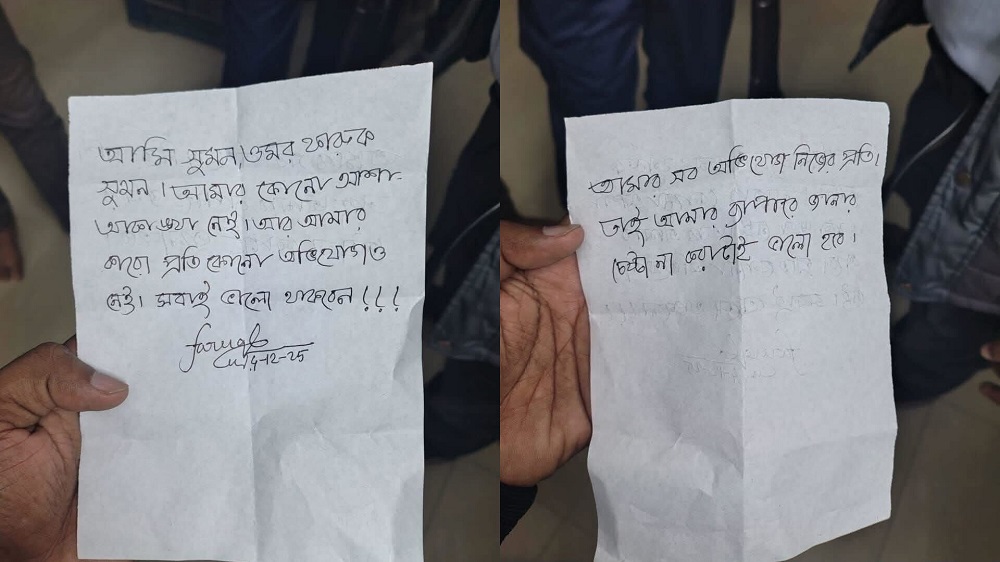 আমি সুমন, ওমর ফারুক
সুমন। আমার কোনো আশা-
আকাঙ্ক্ষা নেই। আর আমার
কারো প্রতি কোনো অভিযোগও
নেই। সবাই ভালো থাকবেন!!!
Faruq
14-12-25
আমার সব অভিযোগ নিজের প্রতি।
তাই আমার ব্যাপারে জানার
চেষ্টা না করাটাই ভালো হবে।